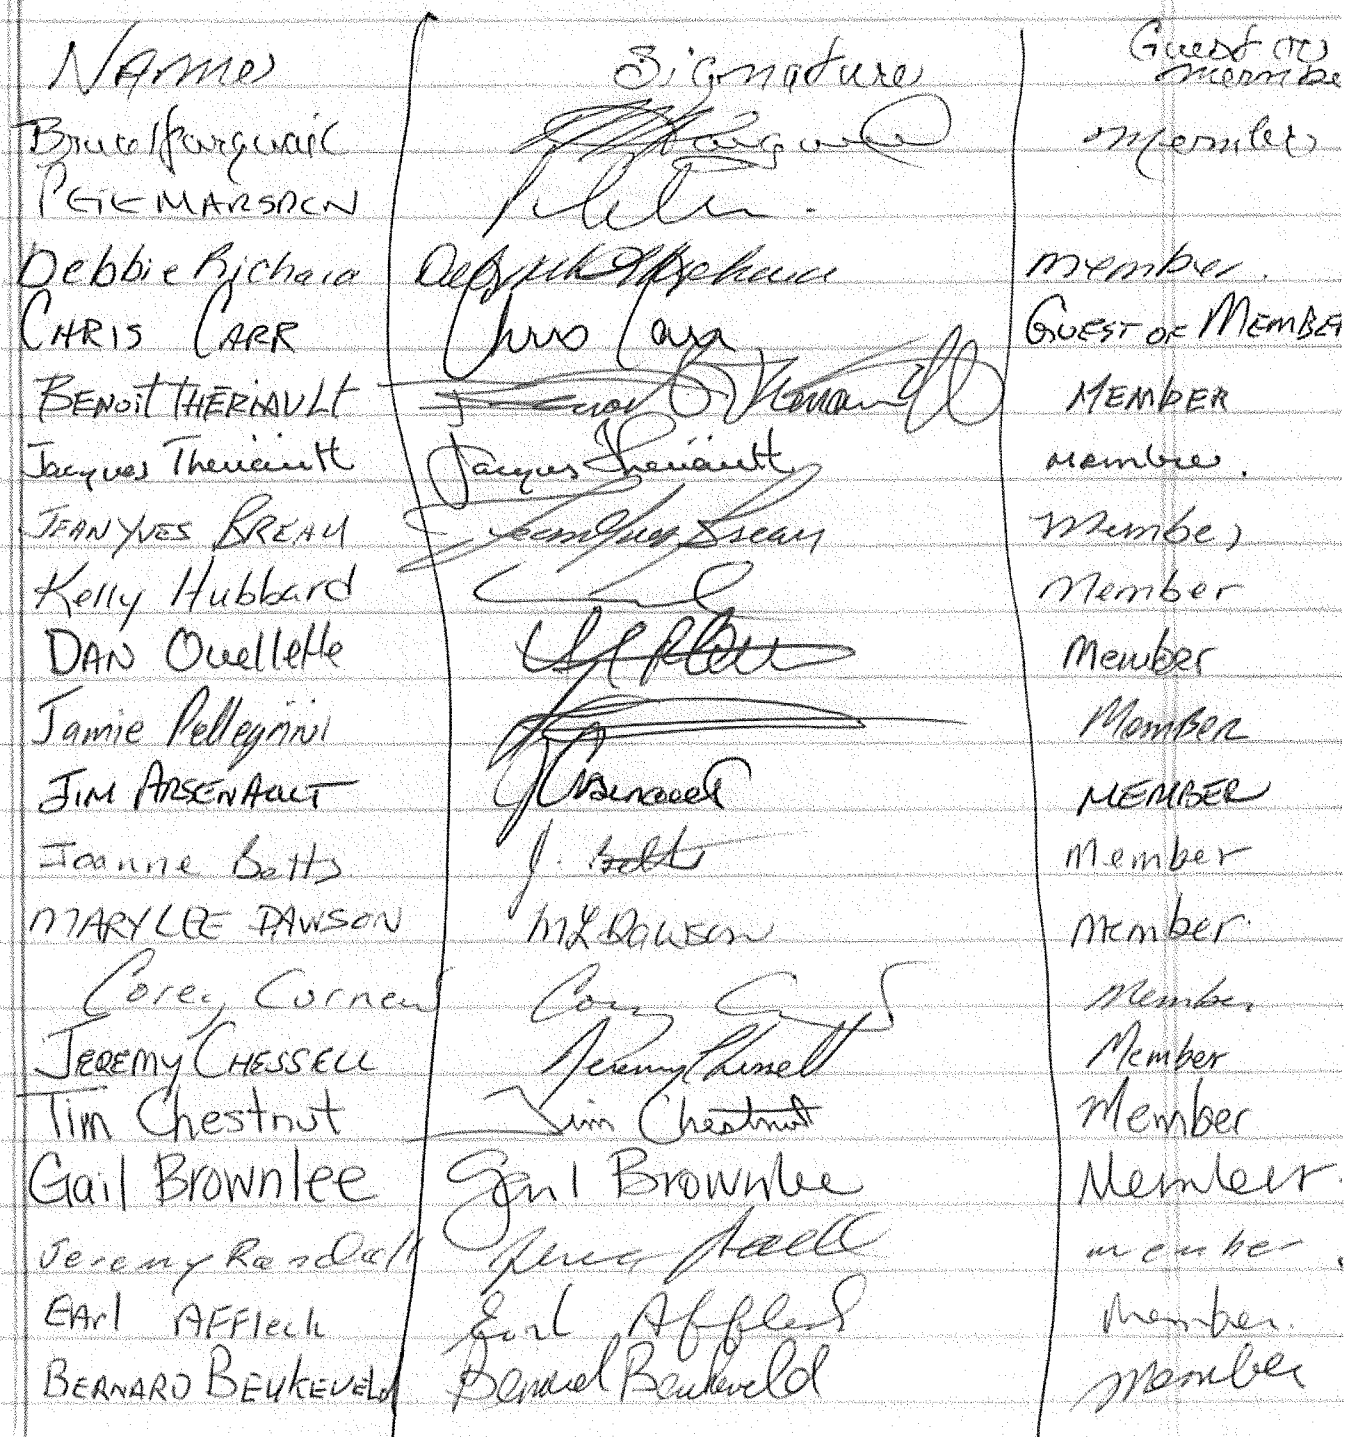 Name Signature Guest or
membe
Bruce Farquhar member
PETE MARSDEN
Debbie Richard Deborah Richard member.
CHRIS CARR Chris Carr GUEST OF MEMBER
BENOIT THERIAULT MEMBER
Jacques Theriault Jacques Theriault member.
JEAN YVES BREAU Jean Yves Breau Member
Kelly Hubbard Member
DAN Ouellette Member
Jamie Pellegrini Member
JIM ARSENAULT MEMBER
Joanne Betts J. Betts Member
MARYLEE DAWSON ML Dawson Member
Corey Member
JEREMY CHESSELL Jeremy Chessell Member
Tim Chestnut Tim Chestnut Member
Gail Brownlee Gail Brownlee Member
Jeremy Randall member.
EArl AFFleck Earl Affleck Member.
BERNARD BEUKEVELD Bernard Beukeveld Member